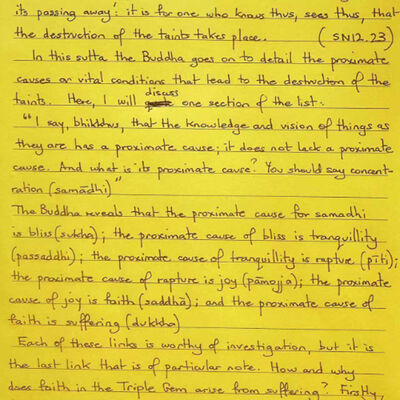 its passing away': it is for one who knows thus, sees thus, that
the destruction of the taints takes place. (SN12.23)
In this sutta the Buddha goes on to detail the proximate
causes or vital conditions that lead to the destruction of the
taints. Here, I will discuss one section of the list:
"I say, bhikkhus, that the knowledge and vision of things as
they are has a proximate cause; it does not lack a proximate
cause. And what is its proximate cause? You should say concent-
ration (samādhi)"
The Buddha reveals that the proximate cause for samadhi
is bliss (sukha); the proximate cause of bliss is tranquillity
(passaddhi); the proximate cause of tranquillity is rapture (pīti);
the proximate cause of rapture is joy (pāmojja); the proximate
cause of joy is faith (saddhā); and the proximate cause of
faith is suffering (dukkha)
Each of these links is worthy of investigation, but it is
the last link that is of particular note. How and why
does faith in the Triple Gem arise from suffering? Firstly,